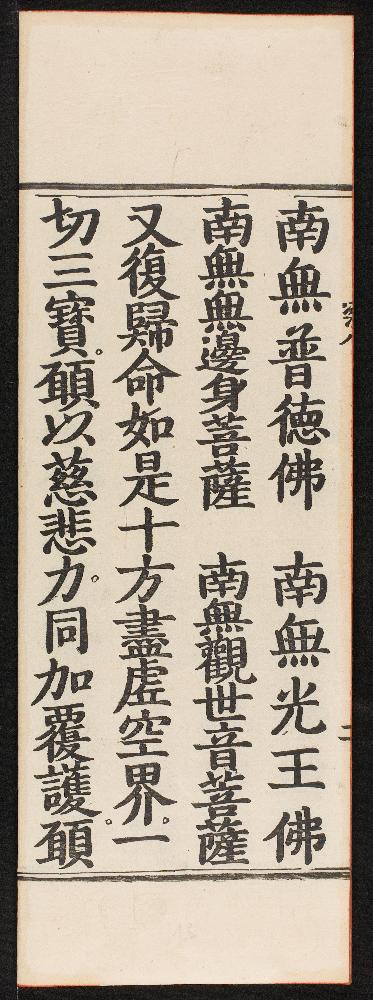 南無普德佛　南無光王佛
南無無邊身菩薩　南無觀世音菩薩
又復歸命如是十方盡虛空界。一
切三寶。願以慈悲力。同加覆護。願